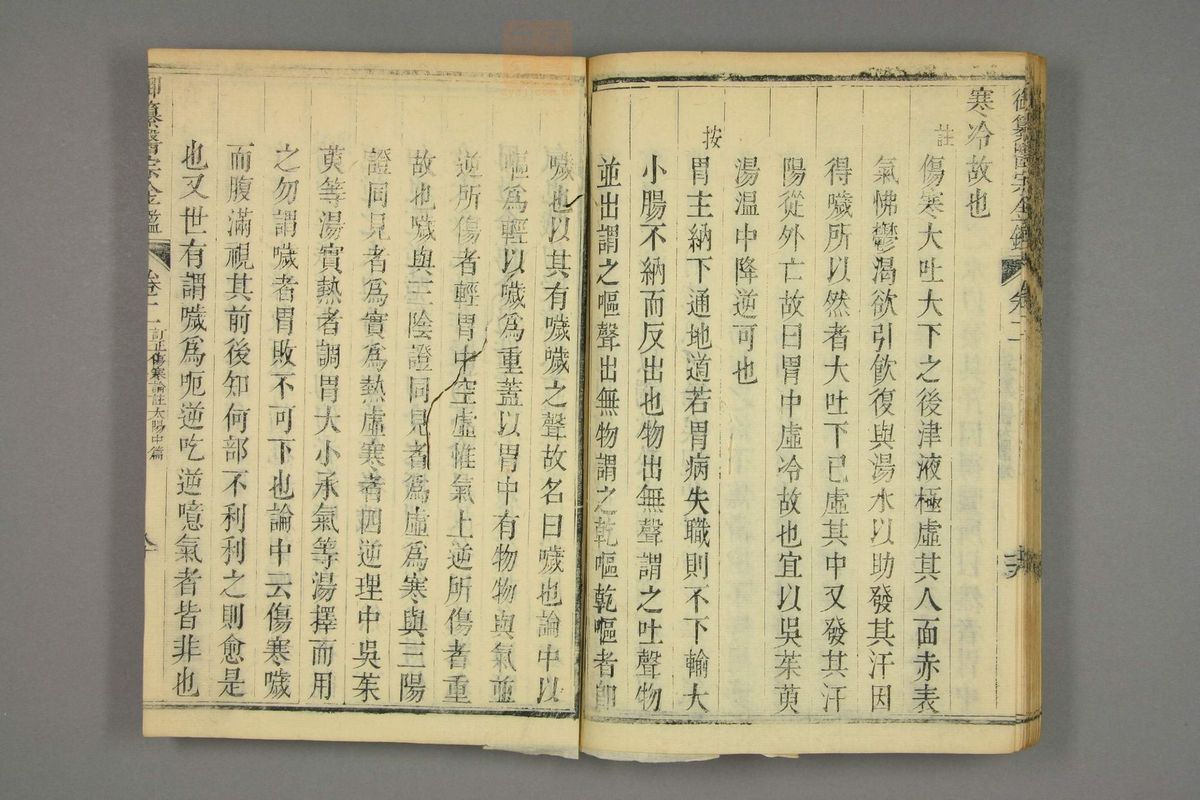 御纂醫宗金鑑 卷二
寒冷故也
註
傷寒大吐大下之後津液極虛其人面赤表
氣怫鬱渴欲引飲復與湯水以助發其汗因
得噦所以然者大吐下已虛其中又發其汗
陽從外亡故曰胃中虛冷故也宜以吳茱萸
湯溫中降逆可也
按
胃主納下通地道若胃病失職則不下輸大
小腸不納而反出也物出無聲謂之吐聲物
並出謂之嘔聲出無物謂之乾嘔乾嘔者卽
噦也以其有噦噦之聲故名曰噦也論中以
嘔爲輕以噦爲重蓋以胃中有物物與氣並
逆所傷者輕胃中空虛惟氣上逆所傷者重
故也噦與三陰證同見者爲虛爲寒與三陽
證同見者爲實爲熱虛寒者四逆理中吳茱
萸等湯實熱者調胃大小承氣等湯擇而用
之勿謂噦者胃敗不可下也論中云傷寒噦
而腹滿視其前後知何部不利利之則愈是
也又世有謂噦爲呃逆吃逆噫氣者皆非也
御纂醫宗金鑑 卷二 訂正傷寒論註 太陽中篇